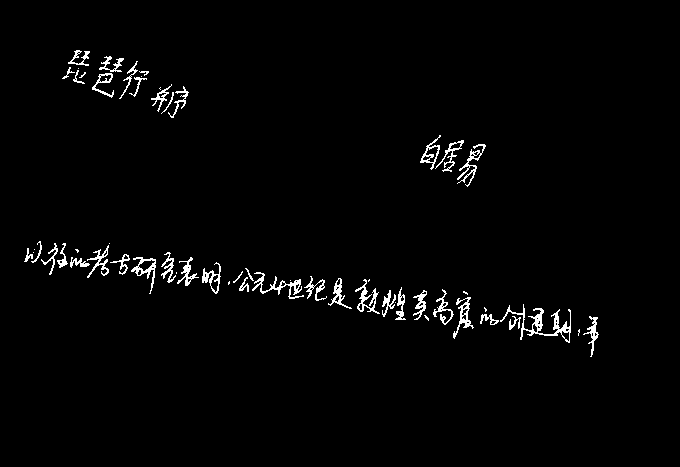 琵琶行 并序
白居易
以往的考古研究表明,公元4世纪是敦煌莫高窟的创建期,第